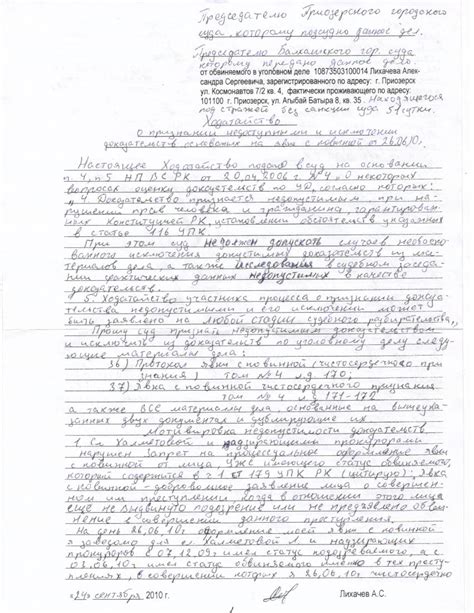 Председателю Приозерского городского
суда, которому подсудно данное дел.
Председателю Балхашского гор. суда
которому передано данное дело.
от обвиняемого в уголовном деле 10873503100014 Лихачева Алек-
сандра Сергеевича, зарегистрированного по адресу: г. Приозерск
ул. Космонавтов 7/2 кв. 4, фактически проживающего по адресу:
101100 г. Приозерск, ул. Агыбай Батыра 8, кв. 35. Находящегося
под стражей без санкции суда 51 сутки.
Ходатайство
О признании недоступным и исключении
доказательств основаных на явке с повиной от 26.06.10г.
Настоящее Ходатайство подаю в суд на основании
п. 4, п. 5 НП ВС РК от 20.04.2006 г. № 4 О некоторых
вопросах оценки доказательств по УД, согласно которых:
"4. Доказательство признается недопустимым при на-
рушении прав человека и гражданина, гарантирован-
ных Конституцией РК, установлении обстоятельств указанных
в статье 116 УПК.
При этом суд не должен допускать случаев необосно-
ванного исключения допустимых доказательств из ма-
териалов дела, а также исследования в судебном заседа-
нии фактических данных недопустимых в качестве
доказательств.
5. Ходатайство участника процесса о признании доказа-
тельства недопустимыми и его исключении может
быть заявлено на любой стадии судебного разбирательства.,,
Прошу суд признать недопустимым доказательством
и исключить из доказательств по уголовному делу следу-
ющие материалы дела:
36) Протокол явки с повинной (чистосердечного при-
знания) том № 4 л.д 170;
37) Явка с повинной чистосердечного признания
том № 4 л.д 171-172
а также ВСЕ материалы дела, основанные на вышеука-
занных двух документах и дублирующие их
Мотивировка недопустимости доказательств
1. Сл Халметовой и надзирающими прокурорами
нарушен запрет на процессуальное оформление явки
с повинной от лица УЖЕ имеющего статус обвиняемого,
который содержится в ч 1 ст 179 УПК РК (цитирую): "Явка
с повинной - добровольное заявление лица о совершен-
ном им преступлении, когда в отношении этого лица
еще не выдвинуто подозрение или не предъявлено обви-
нение в совершении данного преступления.
На день 26.06.10г оформление моей явки с повинной
я заведомо для сл Халметовой и надзирающих
прокуроров с 07.12.09г имел статус подозреваемого, а с
03.06.10г имел статус обвиняемого именно в тех прес-
туплениях, в совершении которых я 26.06.10г чистосердечно
«24» сентября 2010 г. Лихачев А.С.
1